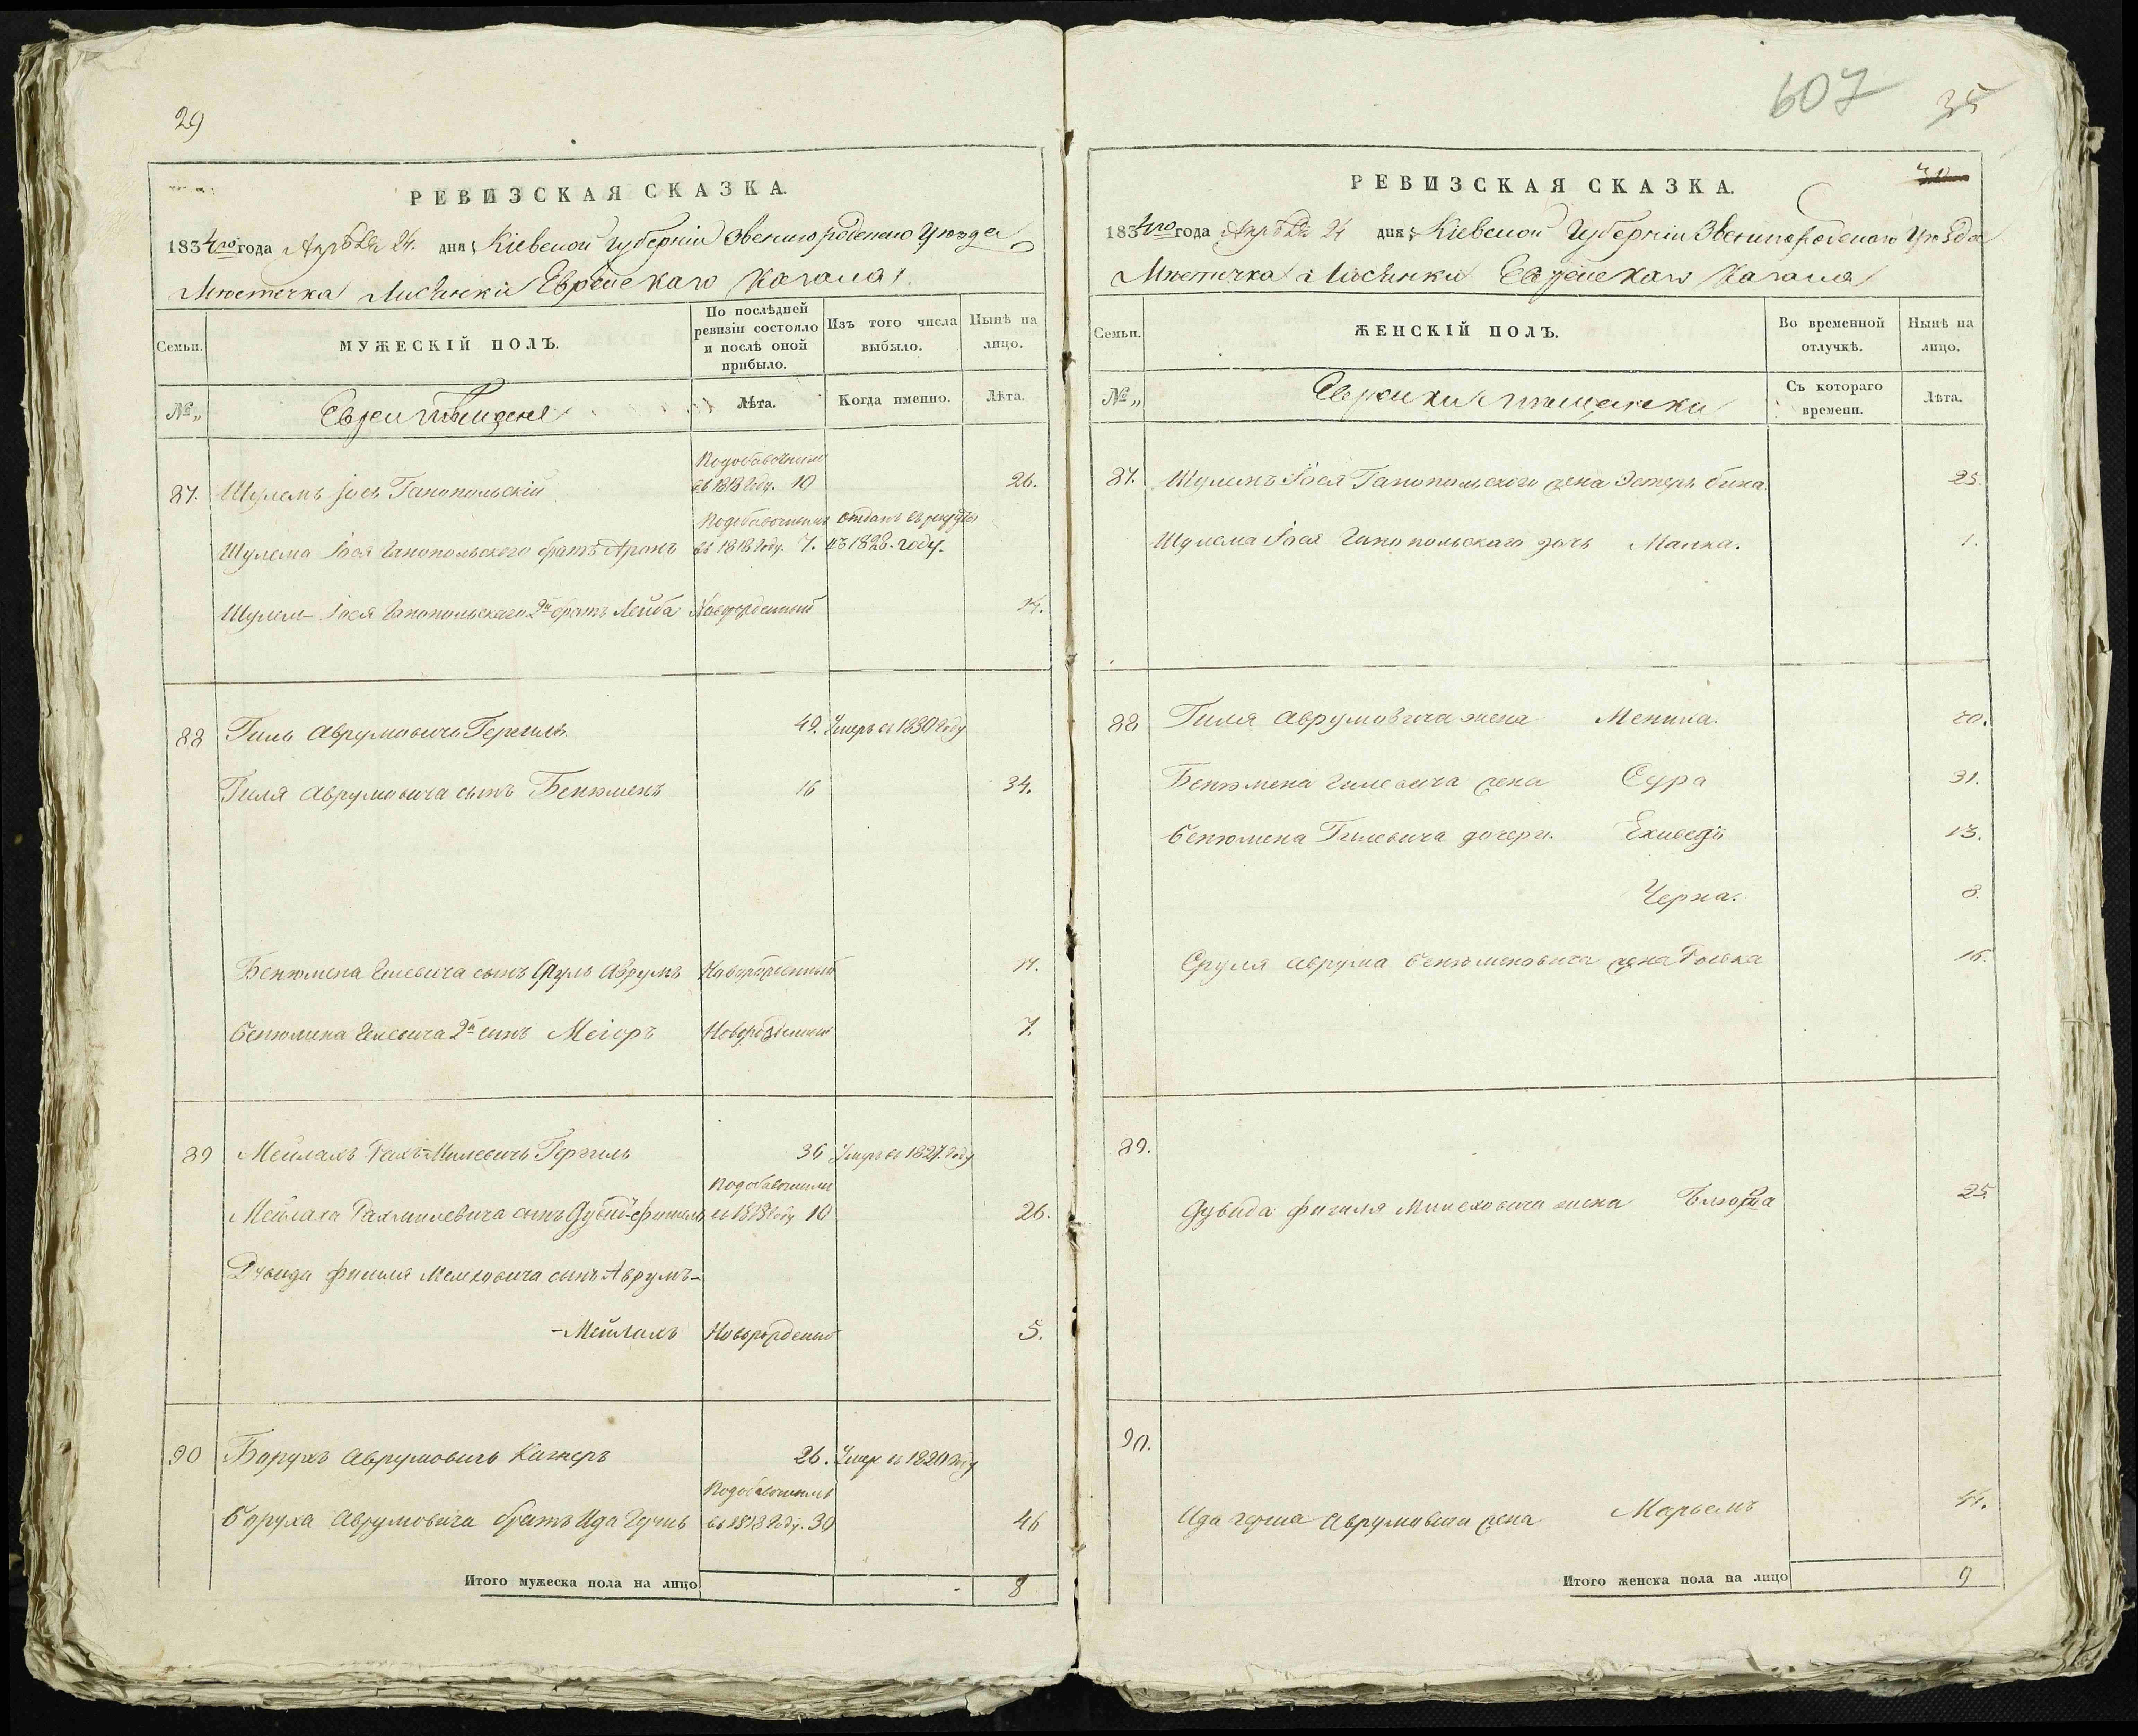 29
РЕВИЗСКАЯ СКАЗКА.
1834го года Апрѣля 24. дня Кіевской Губерніи Звенигородскаго Уѣзда
Мѣстечка Лисянки Еврейскаго Кагала
Семьи.
МУЖЕСКІЙ ПОЛЪ.
По послѣдней ревизіи состояло и послѣ оной прибыло.
Изъ того числа выбыло.
Нынѣ на лицо.
№
Евреи Мѣщане
Лѣта.
Когда именно.
Лѣта.
87. Шулемъ Іось Ганопольскій въ 1818 году. 10 26.
Шулема Іося Ганопольскаго братъ Аронъ въ 1818 году. 7. отданъ въ рекруты въ 1828. году.
Шулем- Іося Ганопольскаго 2й братъ Лейба Новорожденный 14.
88 Гиль Аврумовичъ Гергель 49. Умеръ въ 1830 году
Гиля Аврумовича сынъ Бенюменъ 16 34.
Бенюмена Гилевича сынъ Сруль Аврумъ Новорожденный 17.
Бенюмена Гилевича 2й сынъ Меіоръ Новорожденный 7.
89 Мейлахъ Рахмилевичъ Гергель 36 Умеръ въ 1827. году
Мейлаха Рахмилевича сынъ Дувид-Фишель въ 1818 году 10 26.
Дувида Фишеля Мелеховича сынъ Аврумъ-
-Мейлахъ Новорожденный 5.
90 Борухъ Аврумовичъ 26. Умеръ въ году
Боруха Аврумовича братъ Ида Гершъ въ 1818 году. 30 46
Итого мужеска пола на лицо 8
607
35
РЕВИЗСКАЯ СКАЗКА.
1834го года Апрѣля 24 дня Кіевской Губерніи Звенигородскаго Уѣзда
Мѣстечка Лисянки Еврейскаго Кагала
Семьи.
ЖЕНСКІЙ ПОЛЪ.
Во временной отлучкѣ.
Нынѣ на лицо.
№
Еврейки Мѣщанки
Съ котораго времени.
Лѣта.
87. Шулемъ Іося Ганопольскаго жена Эстеръ 25.
Шулема Іося Ганопольскаго дочь Малка. 1.
88 Гиля Аврумовича жена 70.
Бенюмена Гилевича жена Сура 31.
Бенюмена Гилевича дочери. 13.
Черна. 8.
Сруля Аврума Бенюменовича жена 16.
89.
Дувида Фишеля жена 25
90.
Ида Герша Аврумовича жена Марьемъ 44.
Итого женска пола на лицо 9